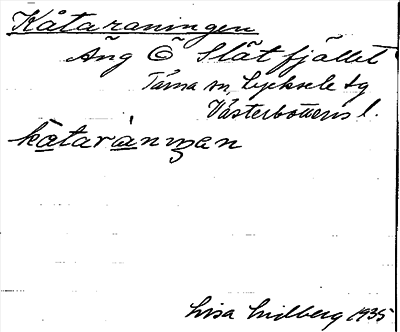 Kåtaraningen
Äng © Slätfjället
Tärna sn, Lycksele lg
Västerbottens l.
kåtarànıŋan
Lisa Lidberg 1935